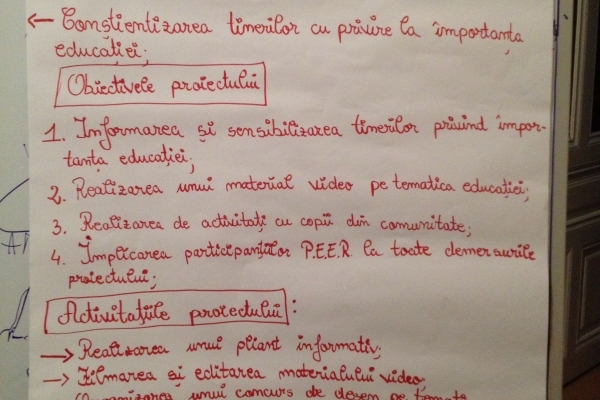 ← Conștientizarea tinerilor cu privire la importanța
educației;
Obiectivele proiectului
1. Informarea și sensibilizarea tinerilor privind impor-
tanța educației;
2. Realizarea unui material video pe tematica educației;
3. Realizarea de activitați cu copii din comunitate;
4. Implicarea participanților P.E.E.R. la toate demersurile
proiectului;
Activitațiile proiectului:
→ Realizarea unui pliant informativ;
→ Filmarea și editarea materialului video;
Organizarea unui concurs de desen pe tema